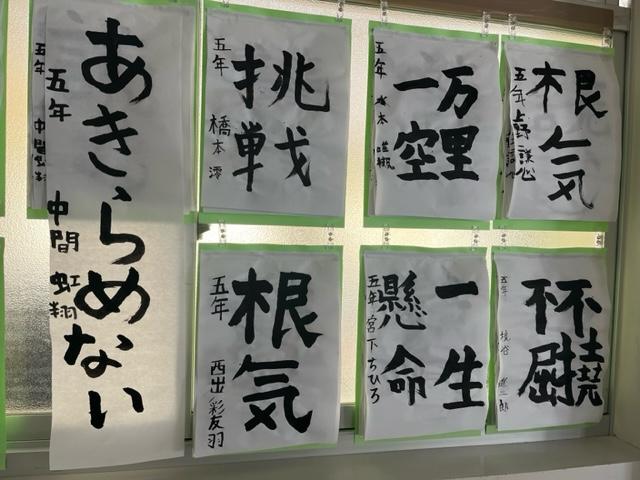 あきらめない
五年 中間 虹翔
五年 中間 虹翔
挑戦
五年 橋本 澪
万里
一空
五年
根気
五年
根気
五年 西出 彩友羽
一生
懸命
五年 宮下 ちひろ
不撓
不屈
五年